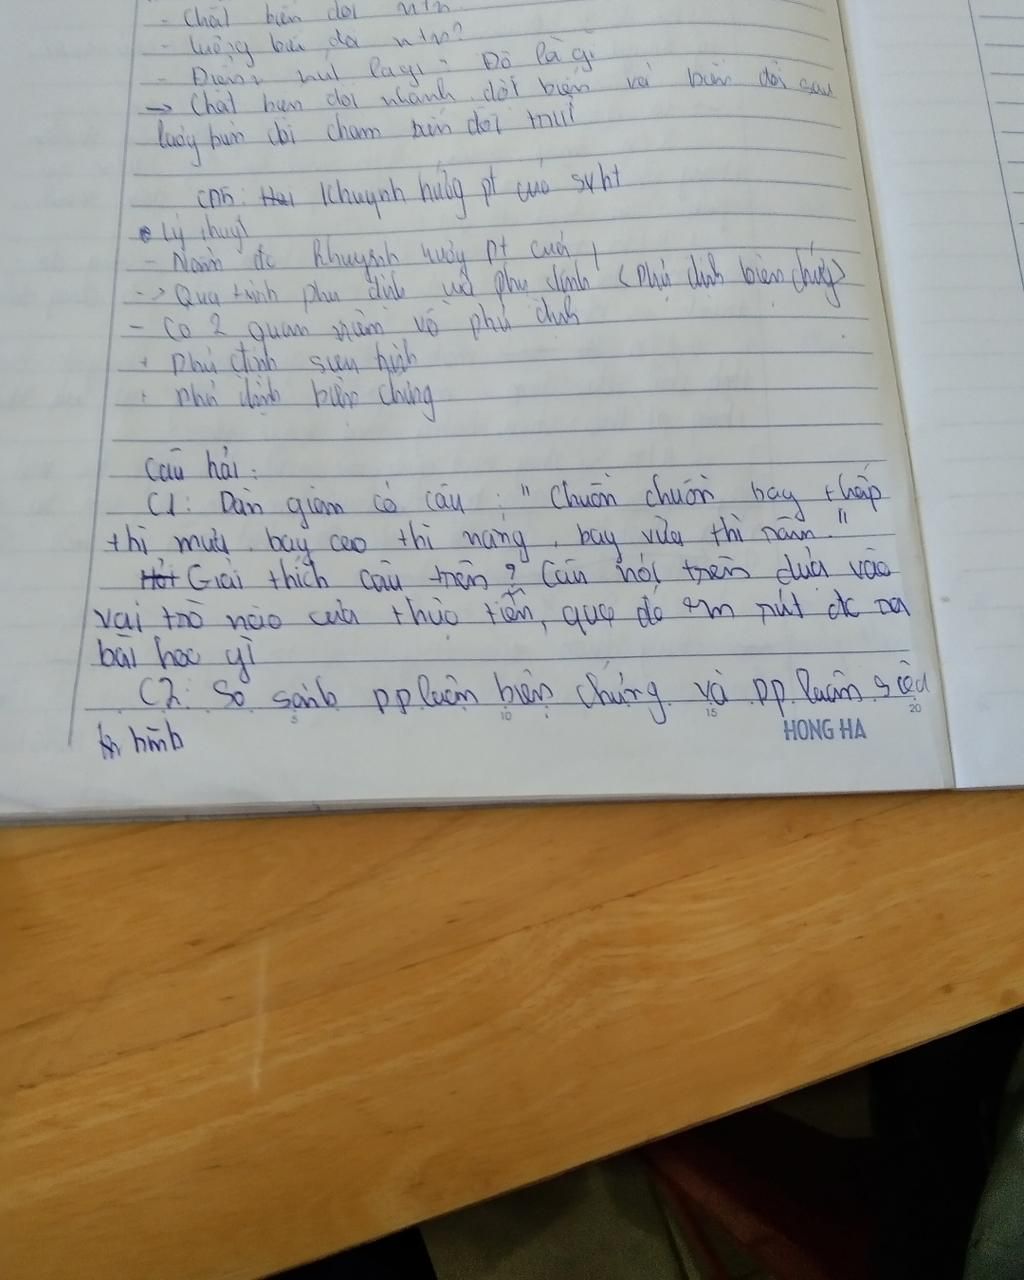 - Chất biến đổi ntn
- lượng biến đổi ntn?
- Điểm nút là gì? Độ là gì
→ Chất biến đổi nhanh, đột biến và biến đổi sau
lượng biến đổi chậm biến đổi trước
CĐ5: Khuynh hướng pt của svht
• Lý thuyết
- Nắm đc khuynh hướng pt của
-> Quá trình phủ định và phủ định (Phủ định biện chứng)
- Có 2 quan niệm về phủ định
+ Phủ định siêu hình
+ Phủ định biện chứng
Câu hỏi:
C1: Dân gian có câu: "Chuồn chuồn bay thấp
thì mưa, bay cao thì nắng, bay vừa thì râm."
Giải thích câu trên? Câu nói trên dựa vào
vai trò nào của thực tiễn, qua đó em rút đc ra
bài học gì
C2: So sánh pp luận biện chứng và pp luận siêu
hình
5 10 15 20
HONG HA